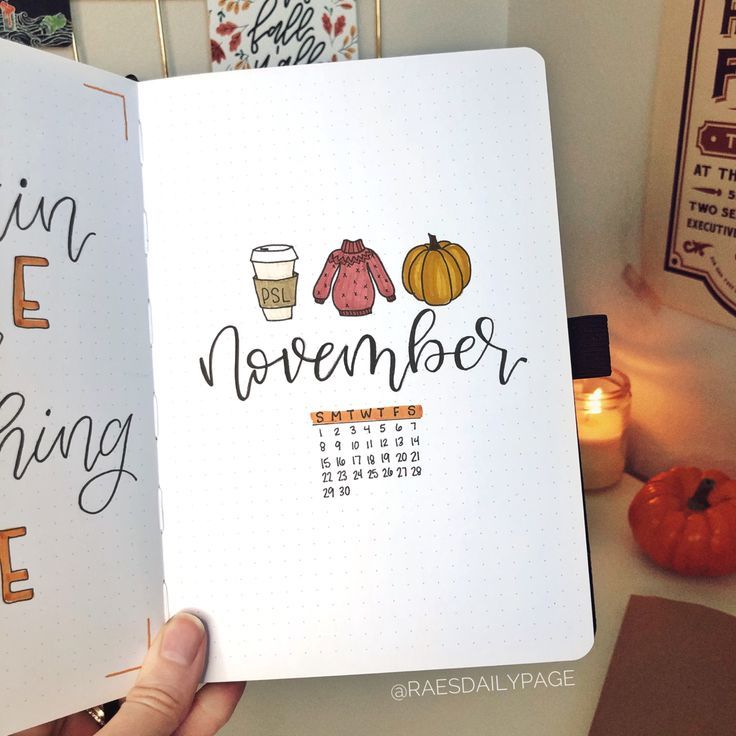 fall
y'all
E
hing
E
PSL
november
S M T W T F S
1 2 3 4 5 6 7
8 9 10 11 12 13 14
15 16 17 18 19 20 21
22 23 24 25 26 27 28
29 30
AT TH
TWO SE
EXECUTIVE
@RAESDAILYPAGE